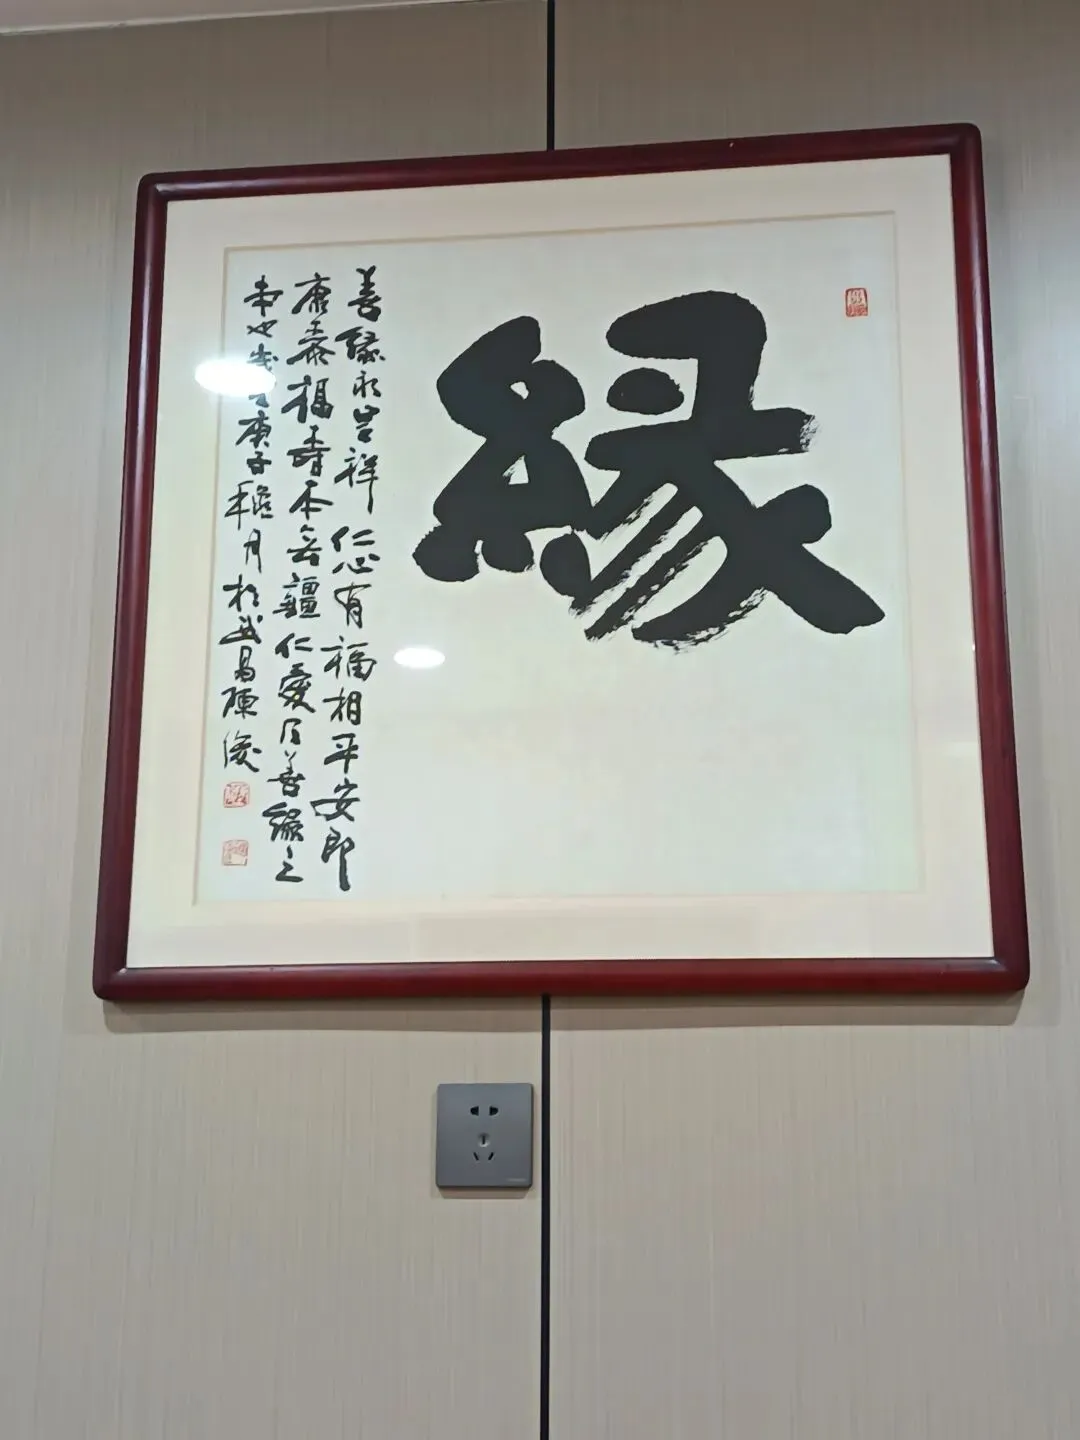 緣
善緣永吉祥仁心有福相平安即
康泰福壽本無疆仁愛乃善緣之
本也歲庚子穐月於武昌陳俊